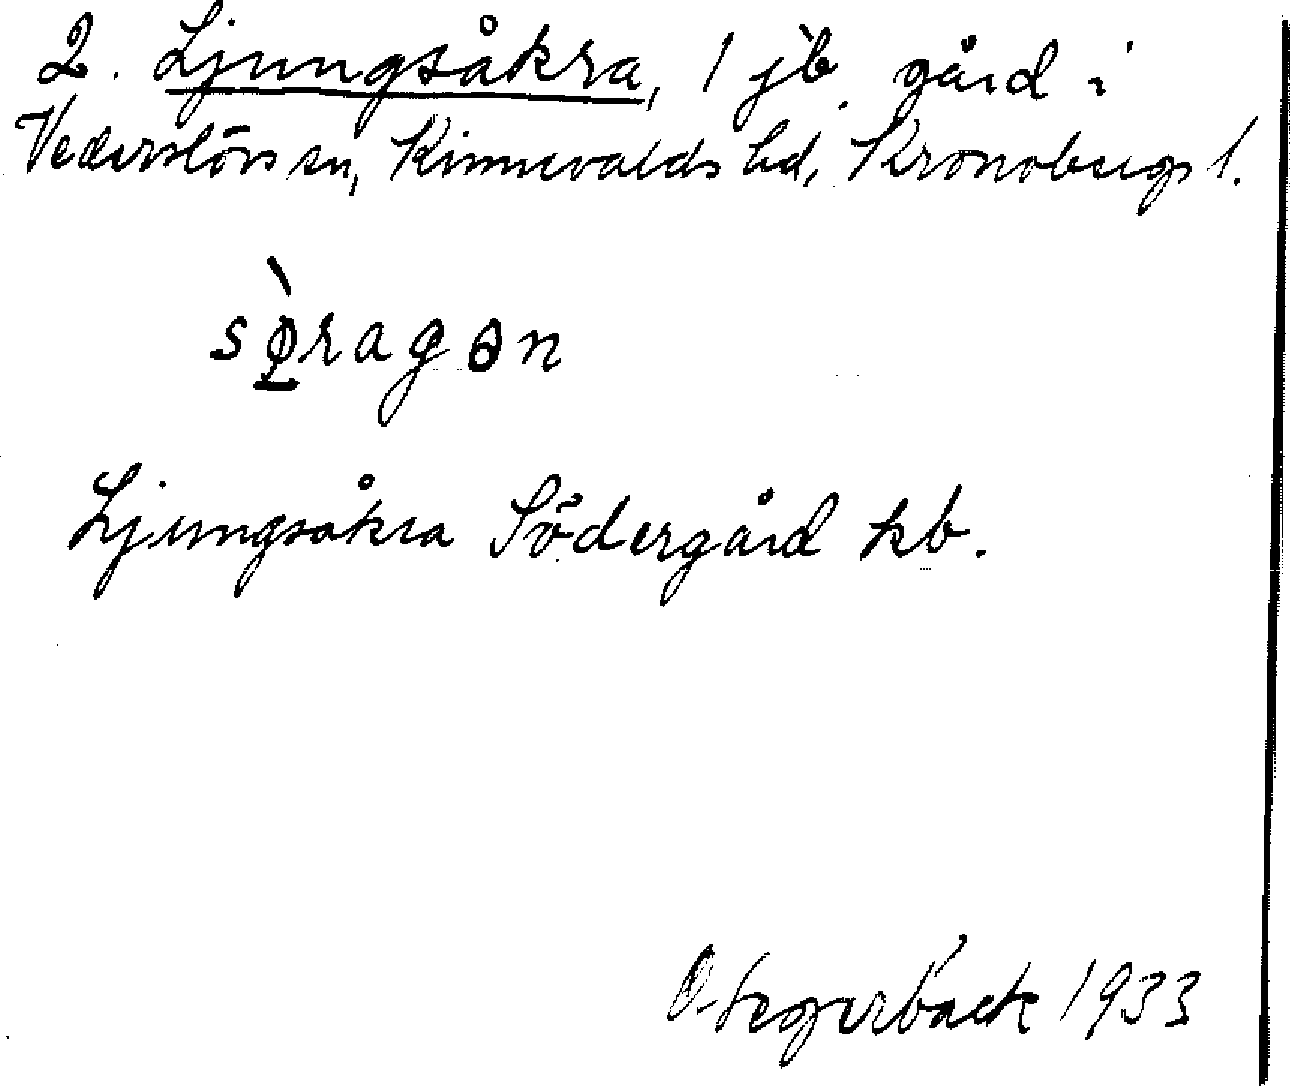 2. Ljungsåkra, 1 jb. gård i
Vederslövs sn, Kinnevalds hd, Kronobergs l.
sø̠̀ragən
Ljungsåkra Södergård kb.
O. Segerbäck 1933